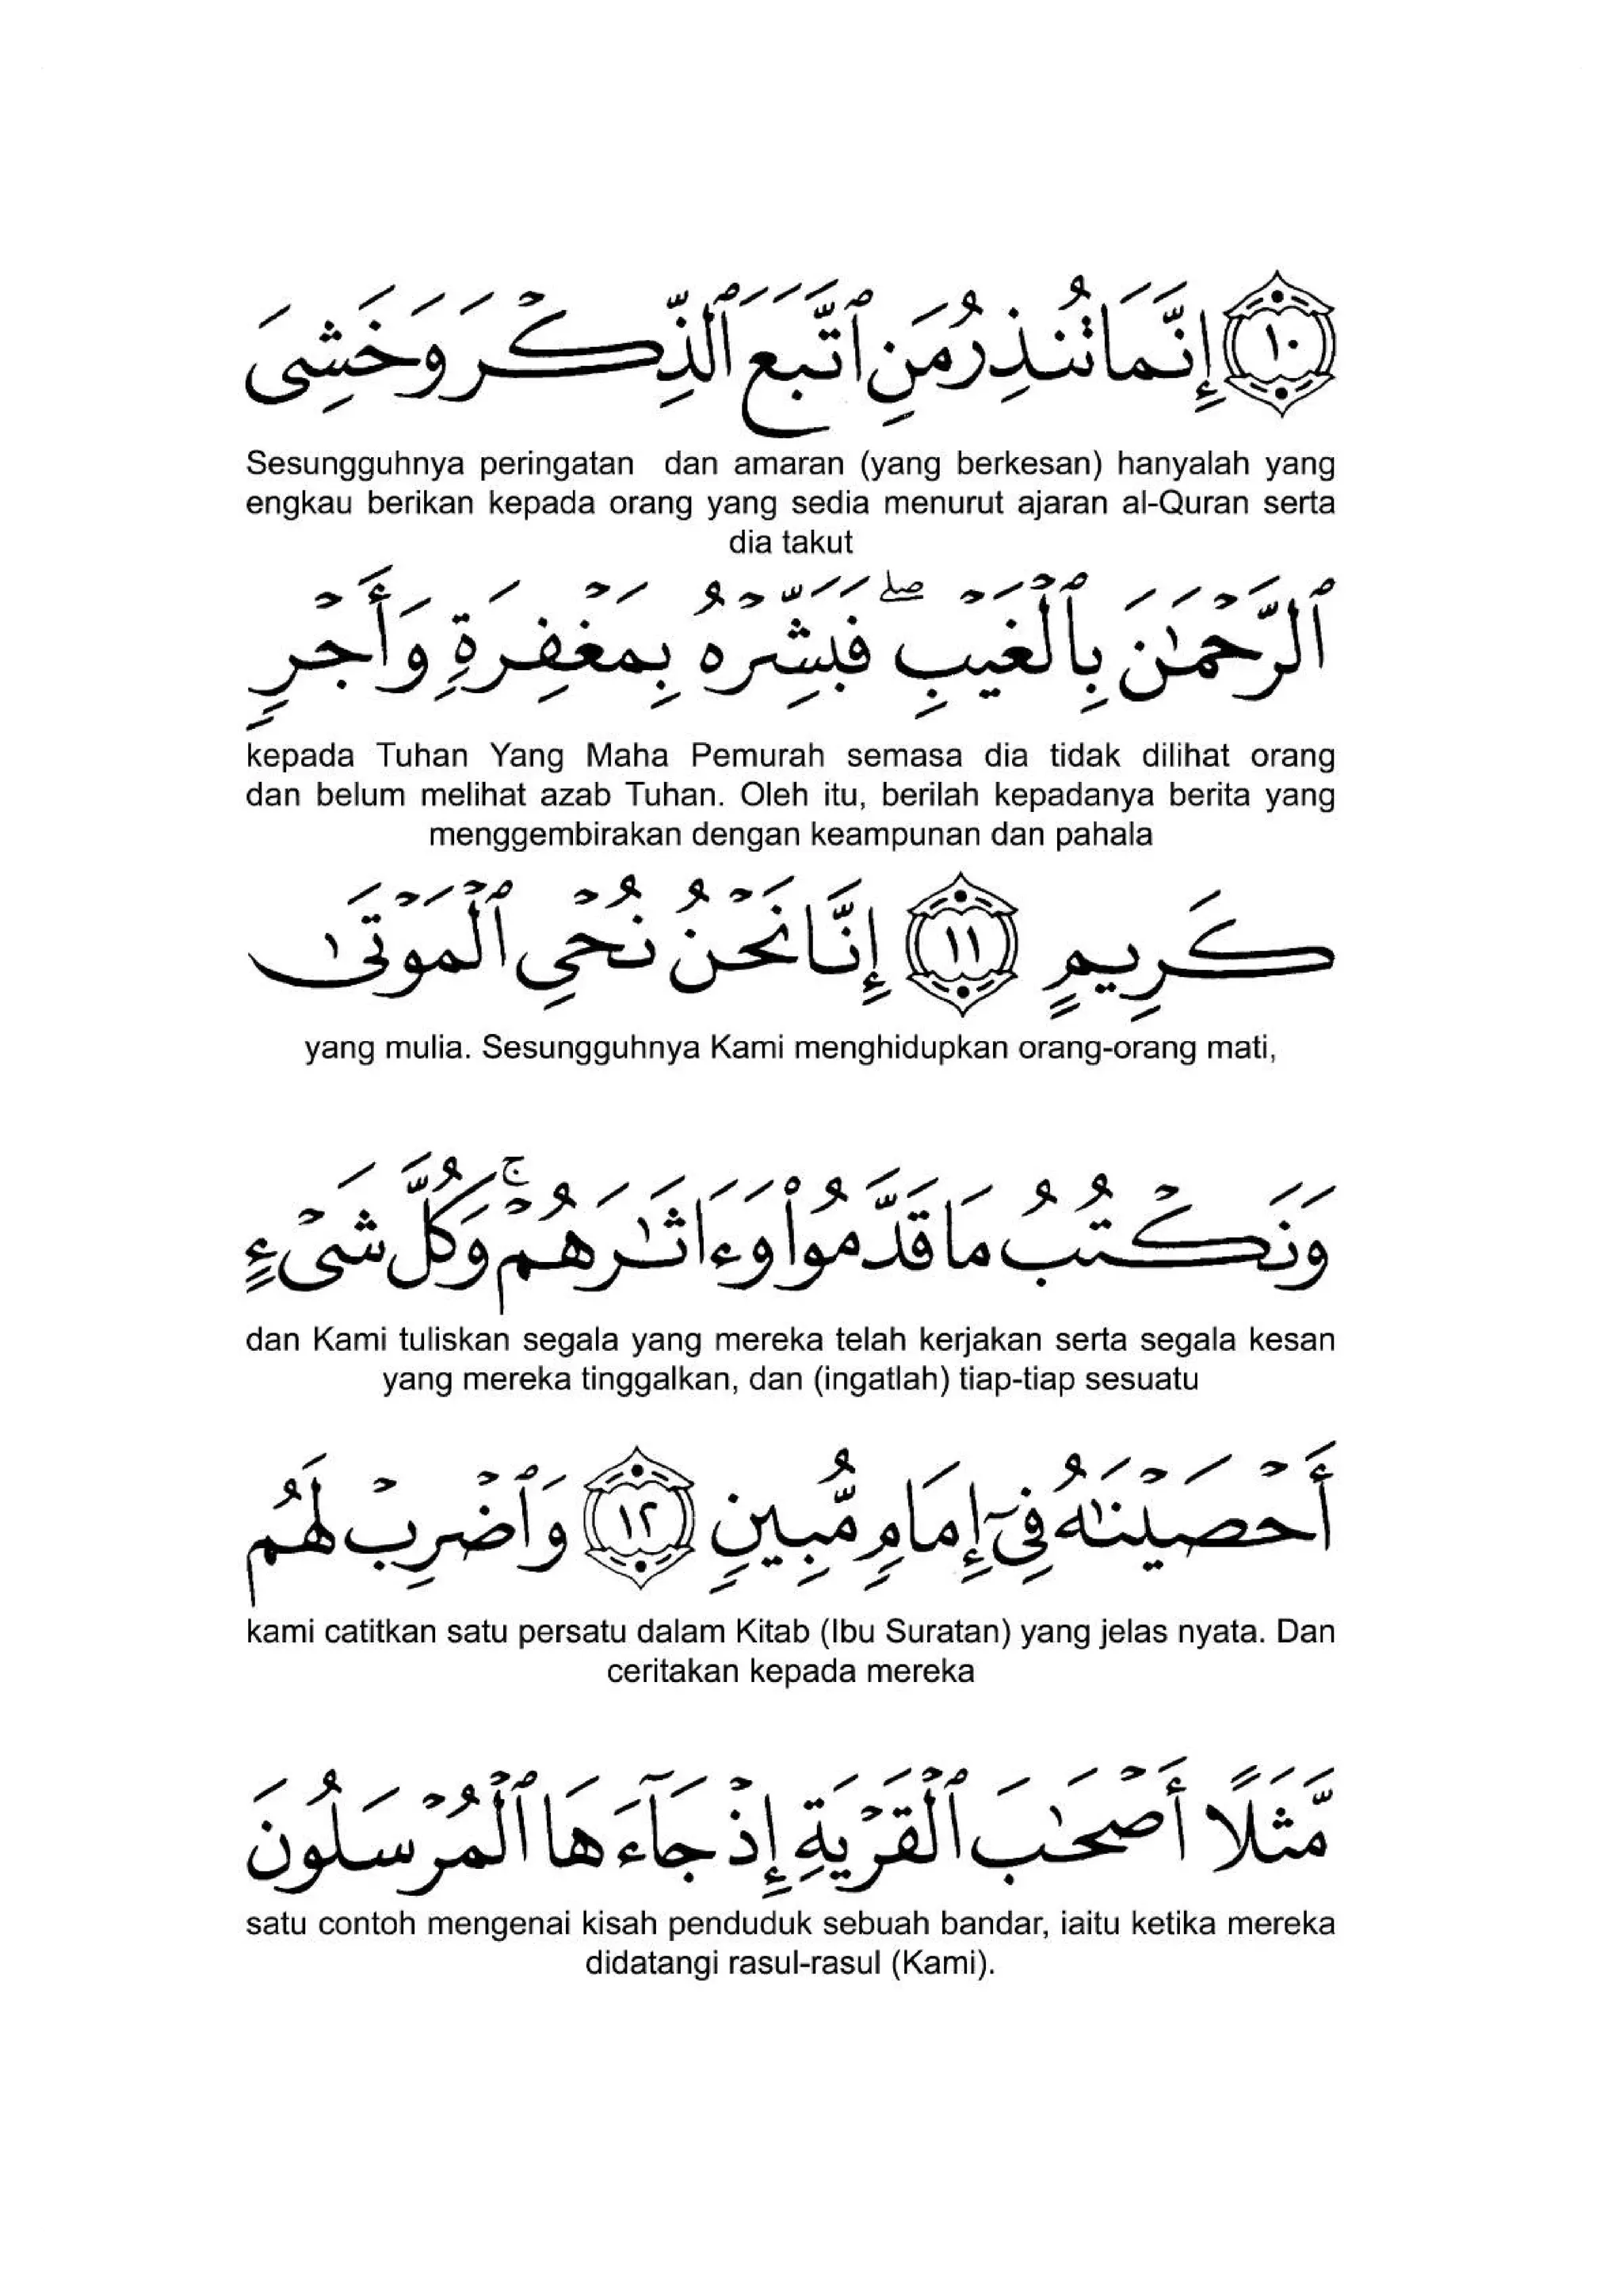 ١٠ إِنَّمَا تُنذِرُ مَنِ ٱتَّبَعَ ٱلذِّكْرَ وَخَشِىَ
Sesungguhnya peringatan dan amaran (yang berkesan) hanyalah yang
engkau berikan kepada orang yang sedia menurut ajaran al-Quran serta
dia takut
ٱلرَّحْمَٰنَ بِٱلْغَيْبِ ۖ فَبَشِّرْهُ بِمَغْفِرَةٍ وَأَجْرٍ
kepada Tuhan Yang Maha Pemurah semasa dia tidak dilihat orang
dan belum melihat azab Tuhan. Oleh itu, berilah kepadanya berita yang
menggembirakan dengan keampunan dan pahala
كَرِيمٍ ١١ إِنَّا نَحْنُ نُحْىِ ٱلْمَوْتَىٰ
yang mulia. Sesungguhnya Kami menghidupkan orang-orang mati,
وَنَكْتُبُ مَا قَدَّمُوا۟ وَءَاثَٰرَهُمْ ۚ وَكُلَّ شَىْءٍ
dan Kami tuliskan segala yang mereka telah kerjakan serta segala kesan
yang mereka tinggalkan, dan (ingatlah) tiap-tiap sesuatu
أَحْصَيْنَٰهُ فِىٓ إِمَامٍ مُّبِينٍ ١٢ وَٱضْرِبْ لَهُم
kami catitkan satu persatu dalam Kitab (Ibu Suratan) yang jelas nyata. Dan
ceritakan kepada mereka
مَّثَلًا أَصْحَٰبَ ٱلْقَرْيَةِ إِذْ جَآءَهَا ٱلْمُرْسَلُونَ
satu contoh mengenai kisah penduduk sebuah bandar, iaitu ketika mereka
didatangi rasul-rasul (Kami).